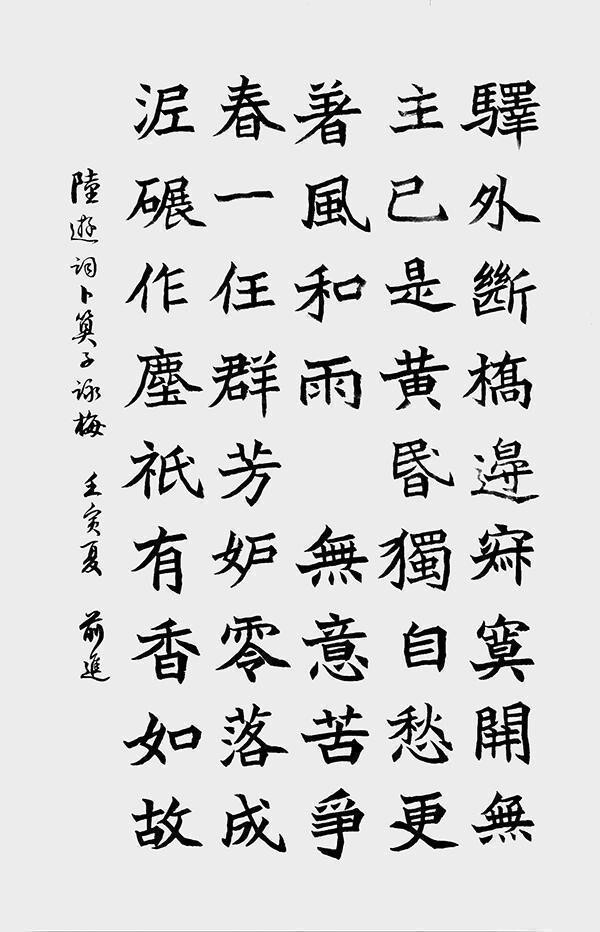 驛外斷橋邊寂寞開無
主已是黃昬獨自愁更
著風和雨 無意苦爭
春一任群芳妒零落成
泥碾作塵祇有香如故
陸遊詞卜算子詠梅 壬寅夏 前進